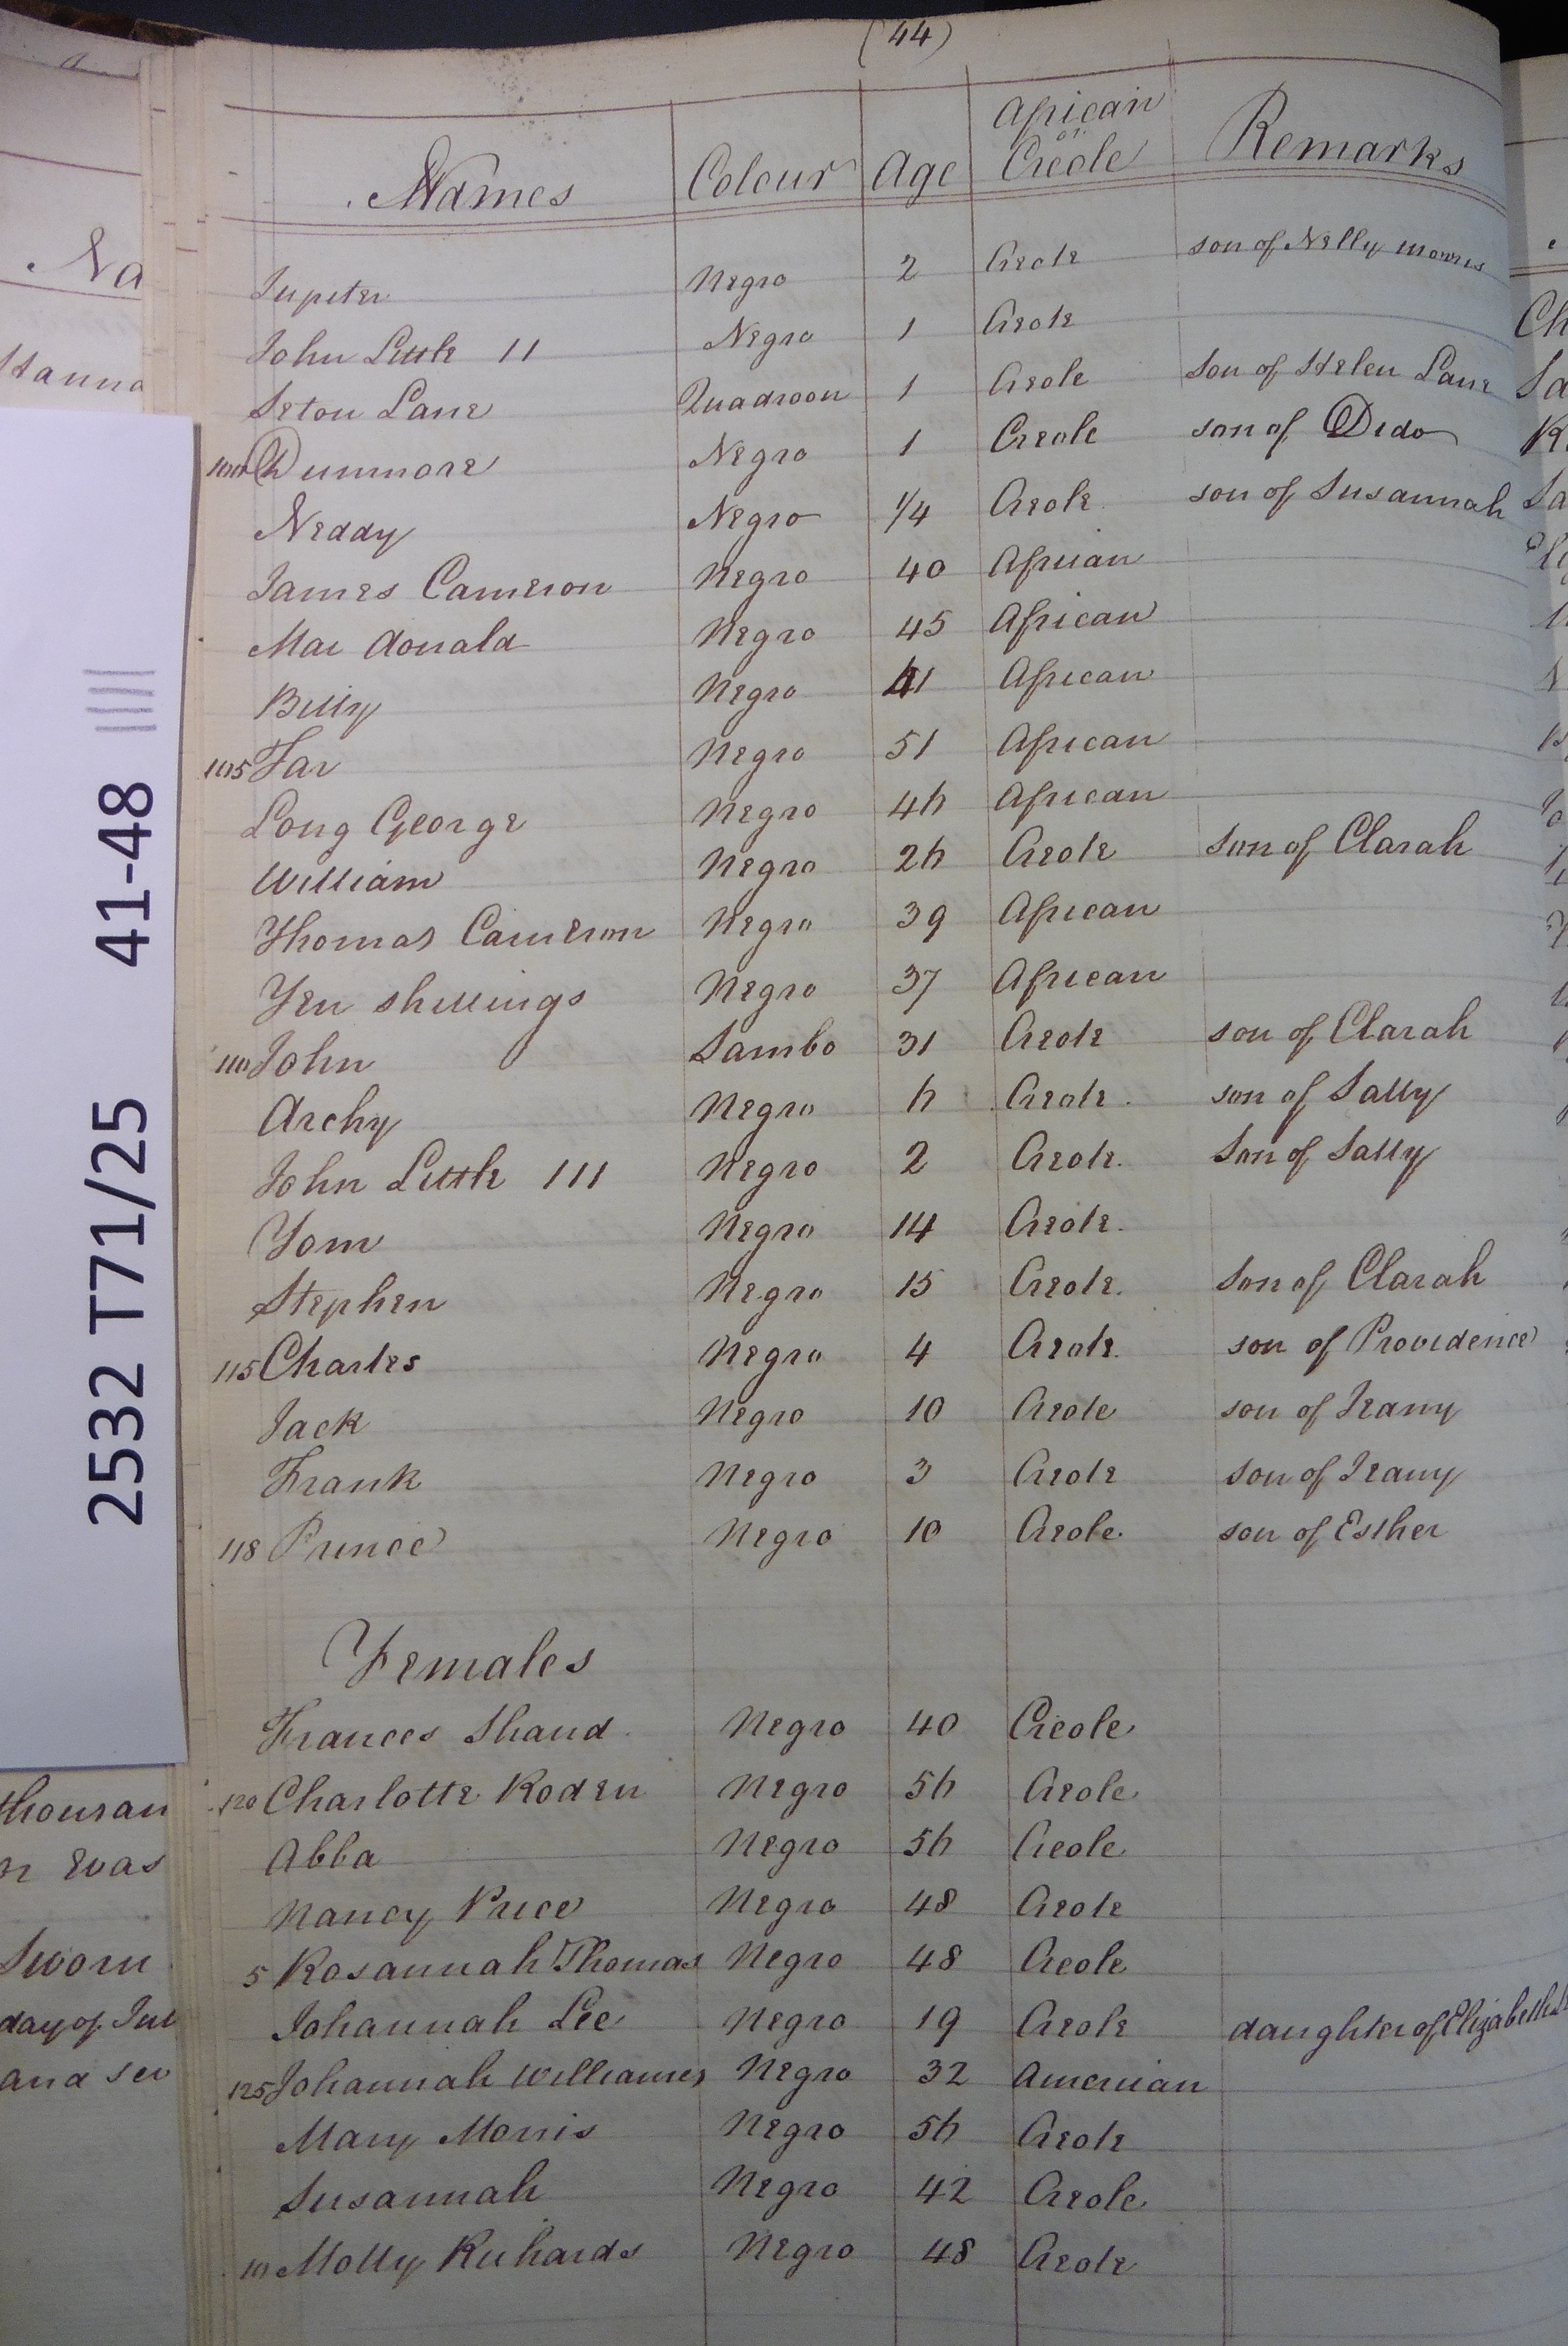 (44)
Names Colour Age African or Creole Remarks
Jupiter Negro 2 Creole son of Nelly Morris
John Little 11 Negro 1 Creole
Seton Lane Quadroon 1 Creole Son of Helen Lane
100 Dunmore Negro 1 Creole son of Dido
Neddy Negro 1/4 Creole son of Susannah
James Cameron Negro 40 African
Mac donald Negro 45 African
Billy Negro 41 African
105 Far Negro 51 African
Long George Negro 46 African
William Negro 26 Creole Son of Clarah
Thomas Cameron Negro 39 African
Ten shillings Negro 37 African
110 John Sambo 31 Creole son of Clarah
Archy Negro 6 Creole son of Sally
John Little 111 Negro 2 Creole Son of Sally
Tom Negro 14 Creole
Stephen Negro 15 Creole Son of Clarah
115 Charles Negro 4 Creole son of Providence
Jack Negro 10 Creole son of Jeany
Frank Negro 3 Creole son of Jeany
118 Prince Negro 10 Creole son of Esther
Females
Frances Shand Negro 40 Creole
120 Charlotte Roden Negro 56 Creole
Abba Negro 56 Creole
Nancy Price Negro 48 Creole
5 Rosannah Thomas Negro 48 Creole
Johannah Lee Negro 19 Creole daughter of Elizabeth
125 Johannah Williames Negro 32 American
Mary Morris Negro 56 Creole
Susannah Negro 42 Creole
10 Molly Richards Negro 48 Creole
2532 T71/25 41-48
Na
Hanna
thousan
Swom
day of Jul
and sev
Ch
Sa